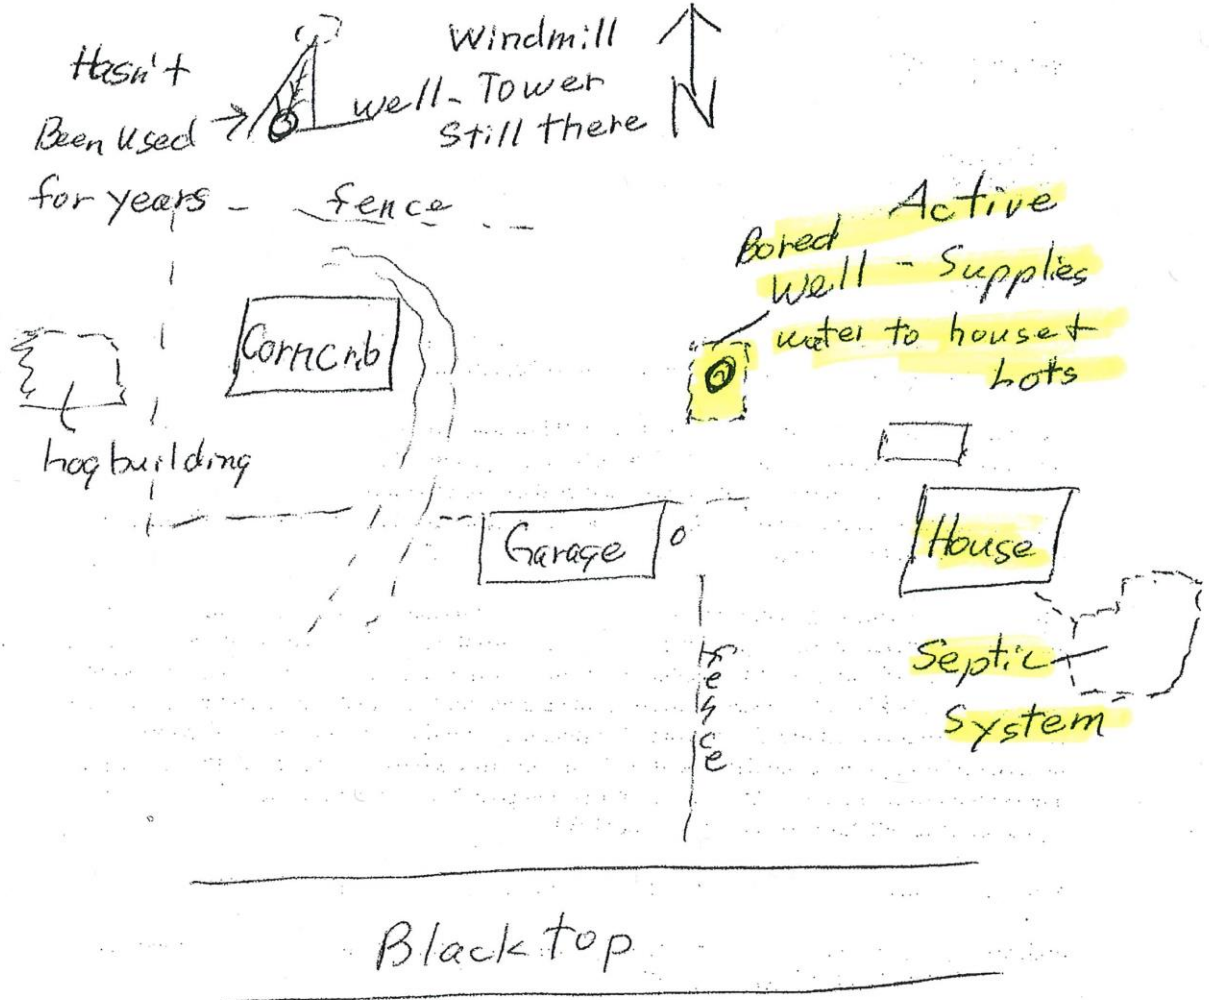 Hasn't
Been Used
for years -
Windmill
well - Tower
Still there
N
fence
Active
Bored
Well - Supplies
water to house +
Lots
Corncrib
hog building
Garage
House
Septic
System
Fence
Blacktop